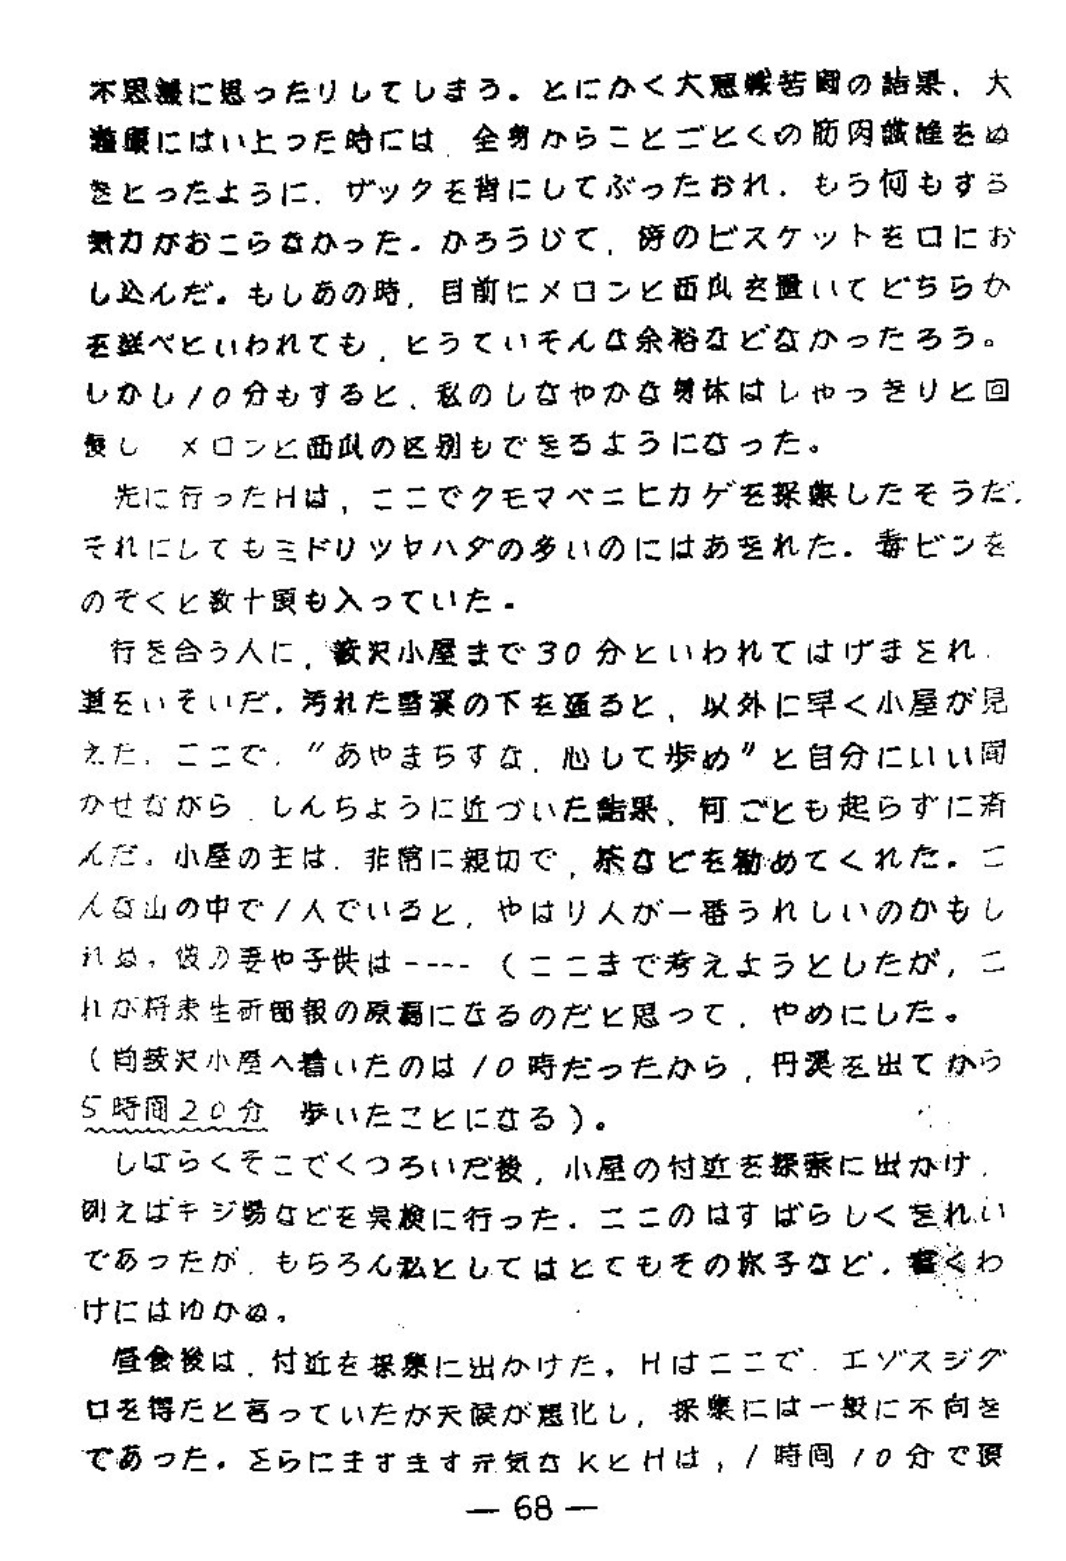 不思議に思ったりしてしまう。とにかく大悪戦苦闘の結果、大
道頭にはい上った時には、全身からことごとくの筋肉繊維をぬ
きとったように、ザックを背にしてぶったおれ、もう何もする
気力がおこらなかった。かろうじて、傍のビスケットを口にお
し込んだ。もしあの時、目前にメロンと西瓜を置いてどちらか
を選べといわれても、とうていそんな余裕などなかったろう。
しかし10分もすると、私のしなやかな身体はしゃっきりと回
復し メロンと西瓜の区別もできるようになった。
先に行ったHは、ここでクモマベニヒカゲを採集したそうだ。
それにしてもミドリツヤハダの多いのにはあきれた。毒ビンを
のぞくと数十頭も入っていた。
行き合う人に、藪沢小屋まで30分といわれてはげまされ、
道をいそいだ。汚れた雪渓の下を通ると、以外に早く小屋が見
えた。ここで、〃あやまちすな、心して歩め〃と自分にいい聞
かせながら、しんちように近づいた結果、何ごとも起らずに済
んだ。小屋の主は、非常に親切で、茶などを勧めてくれた。こ
んな山の中で1人でいると、やはり人が一番うれしいのかもし
れぬ。彼の妻や子供は----（ここまで考えようとしたが、こ
れが将来生研会報の原稿になるのだと思って、やめにした。
（尚藪沢小屋へ着いたのは10時だったから、丹渓を出てから
5時間20分 歩いたことになる）。
しばらくそこでくつろいだ後、小屋の付近を探索に出かけ、
例えばキジ場などを実検に行った。ここのはすばらしくきれい
であったが、もちろん私としてはとてもその様子など、書くわ
けにはゆかぬ。
昼食後は、付近を採集に出かけた。Hはここで、エゾスジグ
ロを得たと言っていたが天候が悪化し、採集には一般に不向き
であった。さらにますます元気なKとHは、1時間10分で頂
— 68 —